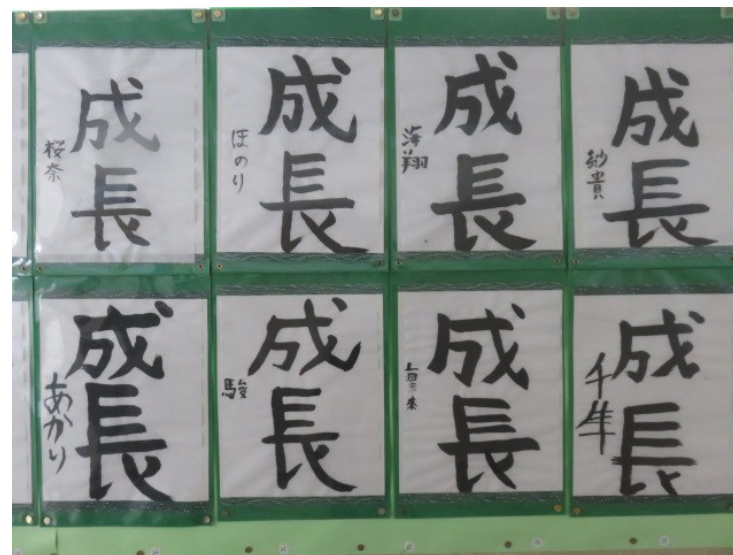 成長
桜奈
成長
ほのり
成長
海翔
成長
紗貴
成長
あかり
成長
駿
成長
成長
千隼